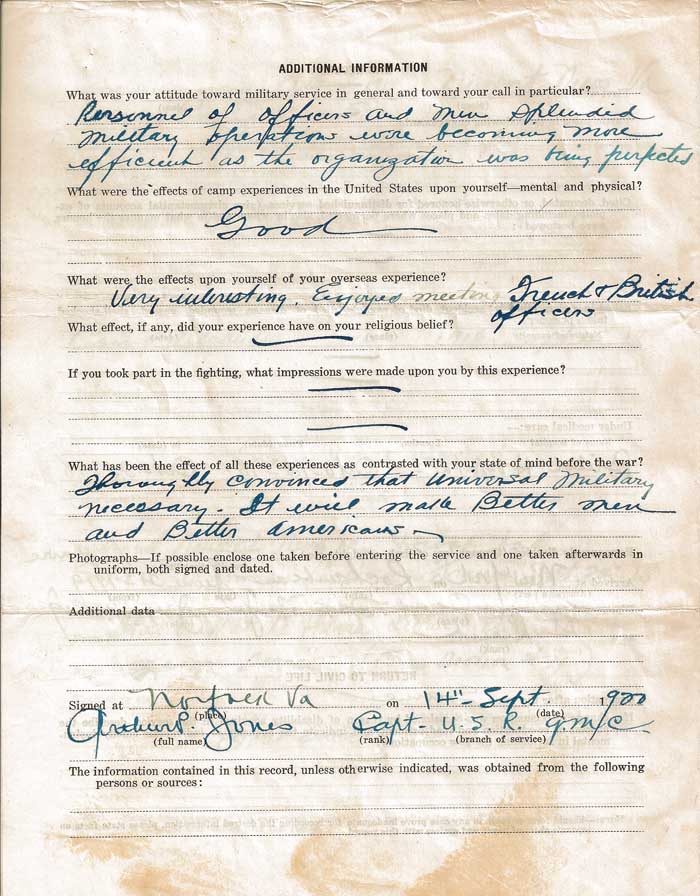 ADDITIONAL INFORMATION
What was your attitude toward military service in general and toward your call in particular?
Personnel of officers and men splendid
military operations were becoming more
efficient as the organization was being perfected
What were the effects of camp experiences in the United States upon yourself—mental and physical?
Good
What were the effects upon yourself of your overseas experience?
Very interesting. Enjoyed meeting French & British
officers
What effect, if any, did your experience have on your religious belief?
If you took part in the fighting, what impressions were made upon you by this experience?
What has been the effect of all these experiences as contrasted with your state of mind before the war?
Thoroughly convinced that universal military
necessary. It will make Better men
and Better Americans
Photographs—If possible enclose one taken before entering the service and one taken afterwards in
uniform, both signed and dated.
Additional data
Signed at Norfolk Va on 14" Sept. 19
(place) (date)
Arthur P. Jones Capt- U.S.R. Q.M.C
(full name) (rank) (branch of service)
The information contained in this record, unless otherwise indicated, was obtained from the following
persons or sources: